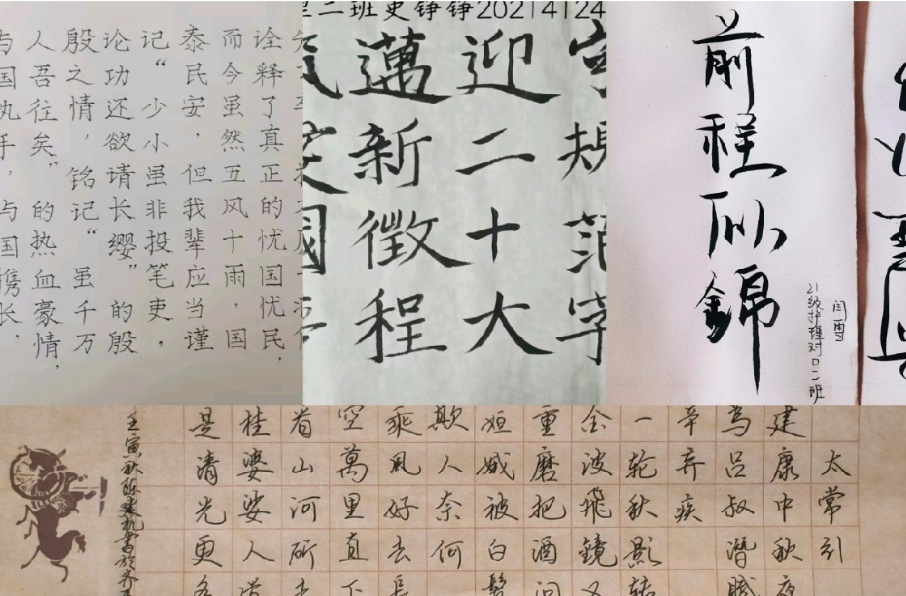 诠释了真正的忧国忧民，
而今虽然五风十雨，国
泰民安，但我辈应当谨
记“少小虽非投笔吏，
论功还欲请长缨”的殷
殷之情，铭记“虽千万
人吾往矣”的热血豪情，
与国执手，与国携长，
二班史铮铮202141 24
字規范字
迎二十大
邁新徵程
前程似錦
21级护理对口二班
闫雪
太常引
建康中秋夜
為吕叔潜賦
辛弃疾
一轮秋影转
金波飛鏡又
重磨把酒问
姮娥被白髮
欺人奈何
乘风好去長
空萬里直下
看山河斫去
桂婆娑人道
是清光更多
壬寅秋